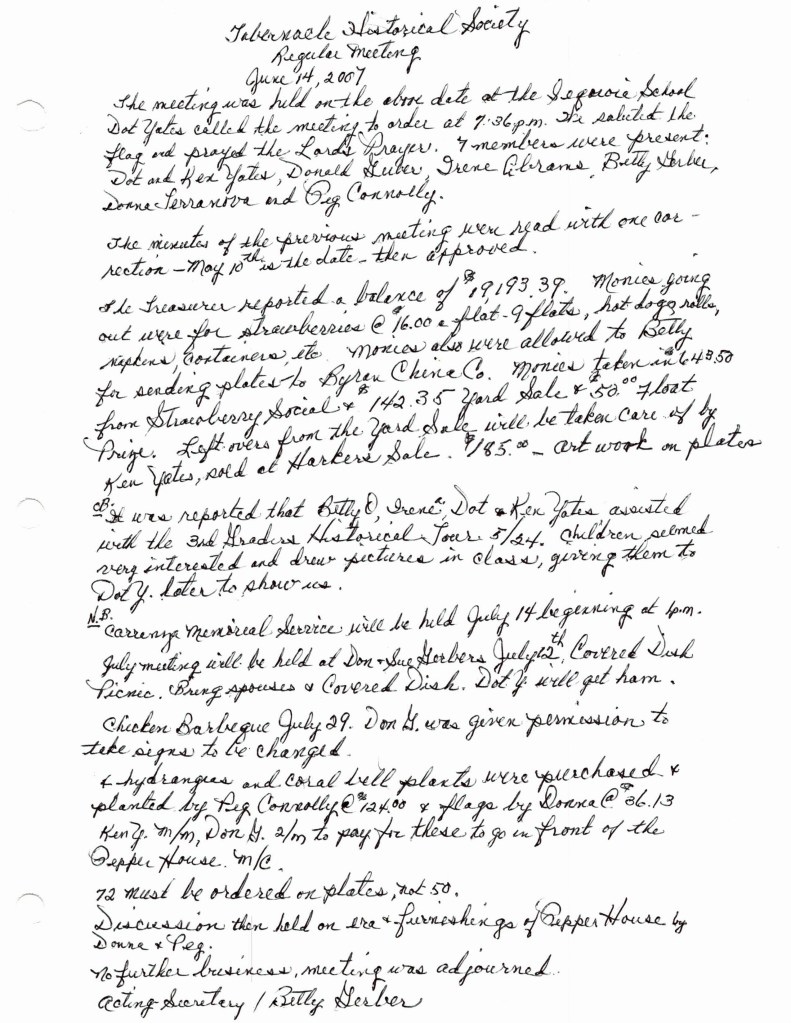 Tabernacle Historical Society
Regular Meeting
June 14, 2007
The meeting was held on the above date at the Sequoia School
Dot Yates called the meeting to order at 7:36 p.m. We saluted the
flag and prayed the Lord's Prayer. 7 members were present:
Dot and Ken Yates, Donald Irene Abrams, Betty Gerber,
Donna Serranova and Peg Connolly.
The minutes of the previous meeting were read with one cor-
rection - May 10th is the date - then approved.
The Treasurer reported a balance of $19,193.39. Monies going
out were for strawberries @ $16.00 a flat - 9 flats, hot dogs, rolls,
napkins, containers, etc. Monies also were allowed to Betty
for sending plates to Byran China Co. Monies taken in $643.50
from Strawberry Social & $142.35 Yard Sale & $50.00 Float
Prize. Left overs from the Yard Sale will be taken care of by
Ken Yates, sold at Harkers Sale. $185.00 - art work on plates
O.B.
It was reported that Betty O, Irene A, Dot & Ken Yates assisted
with the 3rd Graders Historical Tour 5/24. Children seemed
very interested and drew pictures in class, giving them to
Dot Y. later to show us.
N.B.
Carranza Memorial Service will be held July 14 beginning at 1p.m.
July meeting will be held at Don & Sue Gerbers July 12th, Covered Dish
Picnic. Bring spouses & Covered Dish. Dot Y. will get ham.
Chicken Barbeque July 29. Don G. was given permission to
take signs to be changed.
4 hydrangeas and coral bell plants were purchased &
planted by Peg Connolly @ $124.00 & flags by Donna @ $36.13
Ken Y. m/m, Don G. 2/m to pay for these to go in front of the
Pepper House. M/C.
72 must be ordered on plates, not 50.
Discussion then held on era & furnishings of Pepper House by
Donna & Peg.
No further business, meeting was adjourned.
Acting Secretary / Betty Gerber